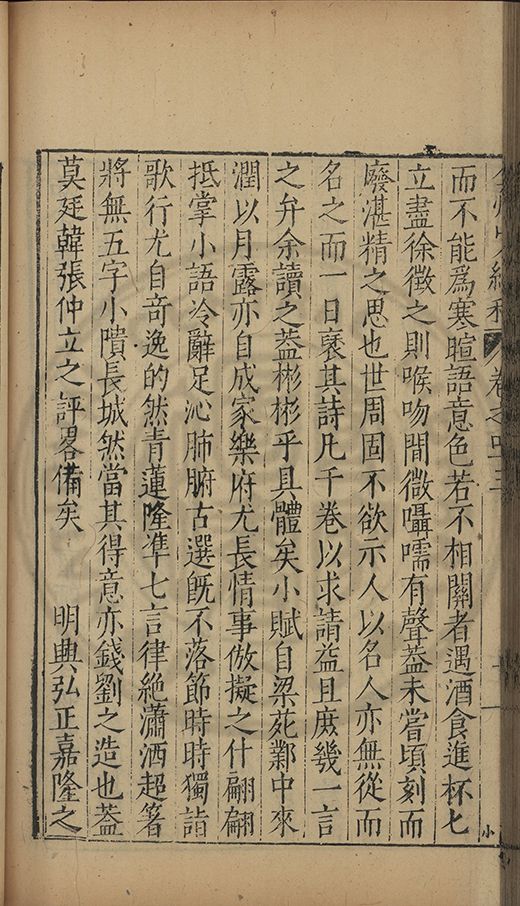 卷之四十三
而不能爲寒暄語意色若不相關者遇酒食進杯七
立盡徐徵之則喉吻間微囁嚅有聲葢未嘗頃刻而
廢湛精之思也世周固不欲示人以名人亦無從而
名之而一日裒其詩凡千卷以求請益且庶幾一言
之弁余讀之葢彬彬乎具體矣小賦自梁苑鄴中來
潤以月露亦自成家樂府尤長情事倣擬之什翩翩
抵掌小語冷辭足沁肺腑古選旣不落節時時獨詣
歌行尤自奇逸的然青蓮隆凖七言律絶瀟洒超著
將無五字小隤長城然當其得意亦錢劉之造也葢
莫廷韓張仲立之評畧備矣　明興弘正嘉隆之
小